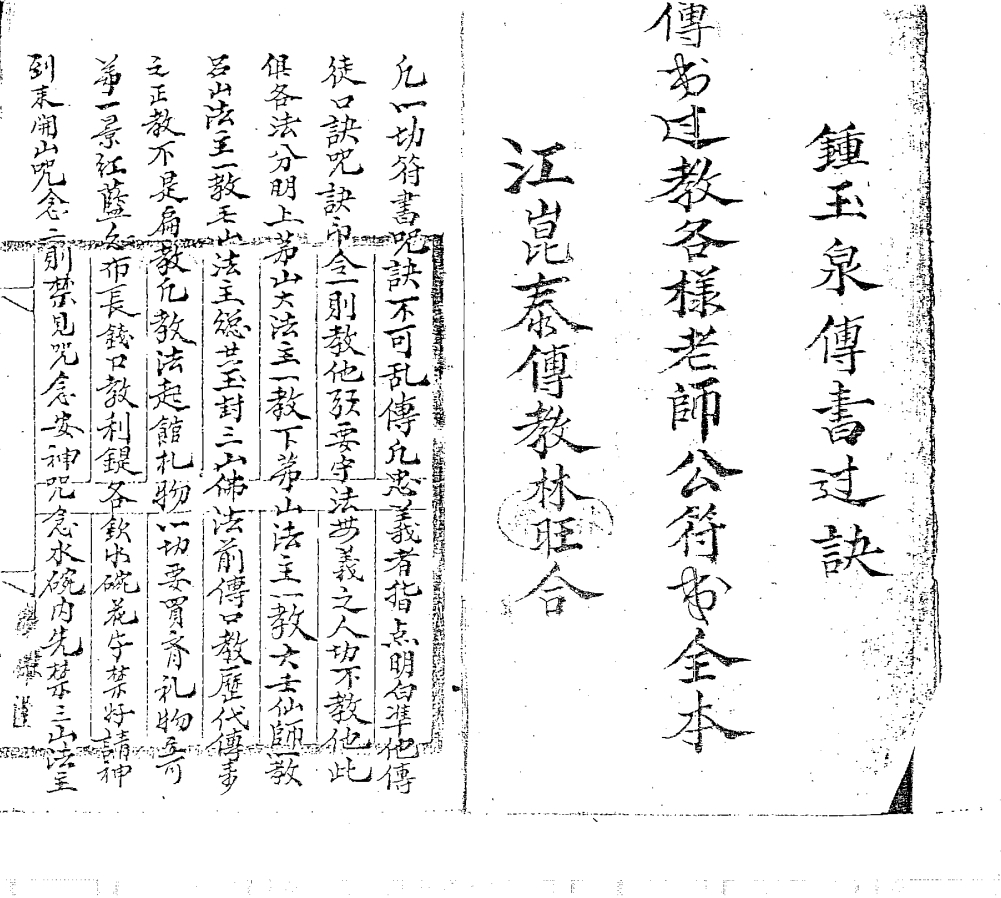 鍾玉泉傳書过訣
傳书过教各樣老師公符书全本
江崑泰傳教林旺合
凡一切符書呪訣不可乱傳凡忠義者指点明白準他傳
徒口訣呪訣印令一則教他须要守法無義之人切不教他此
俱各法分明上茅山大法主一教下茅山法主一教大士仙師一教
呂山法主一教王山法主総共玉封三山佛法前傳口教歷代傳
之正教不是扁教凡教法起館札物一切要買齊礼物可
第一景红藍幺布長錢口教利鍉各飲水碗花字禁好請神
到末開山呪念二則禁見呪念安神呪念水碗内先禁三山法主